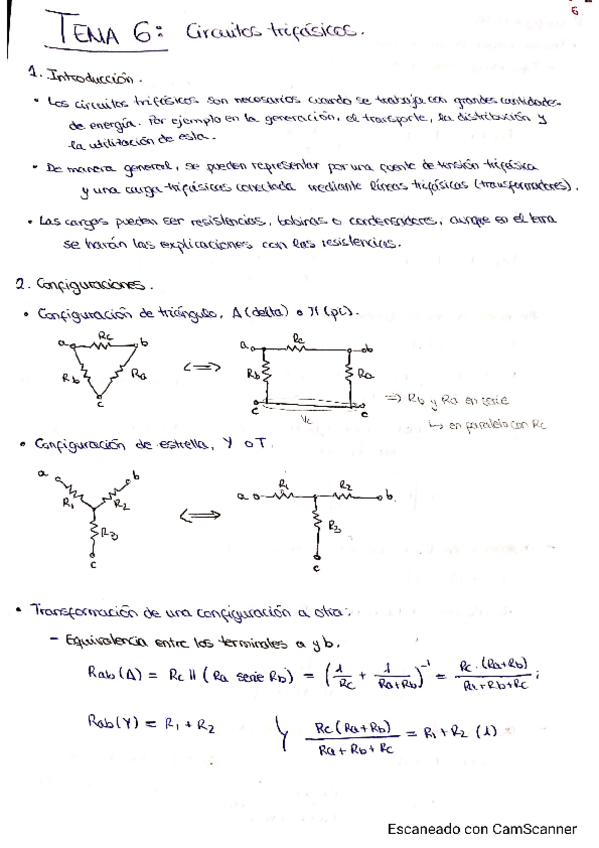 6
TEMA 6: Circuitos trifásicos.
1. Introducción.
• Los circuitos trifásicos son necesarios cuando se trabaja con grandes cantidades
de energía. Por ejemplo en la generación, el transporte, la distribución y
la utilización de esta.
• De manera general, se pueden representar por una fuente de tensión trifásica
y una carga trifásicas conectada mediante líneas trifásicas (transformadores).
• Las cargas pueden ser resistencias, bobinas o condensadores, aunque en el tema
se harán las explicaciones con las resistencias.
2. Configuraciones.
• Configuración de triángulo, Δ (delta) o π (pi).
a Rc b
Rb Ra
c
<=>
a Rc b
Rb Ra
c Vc c
=> Rb y Ra en serie
↳ en paralelo con Rc
• Configuración de estrella, Y o T.
a b
R1 R2
R3
c
<=>
a R1 R2 b
R3
c
• Transformación de una configuración a otra:
- Equivalencia entre los terminales a y b.
Rab (Δ) = Rc || (Ra serie Rb) = (1/Rc + 1/(Ra+Rb))^-1 = Rc·(Ra+Rb)/(Ra+Rb+Rc) ;
Rab (Y) = R1 + R2 y Rc(Ra+Rb)/(Ra+Rb+Rc) = R1 + R2 (1)
Escaneado con CamScanner